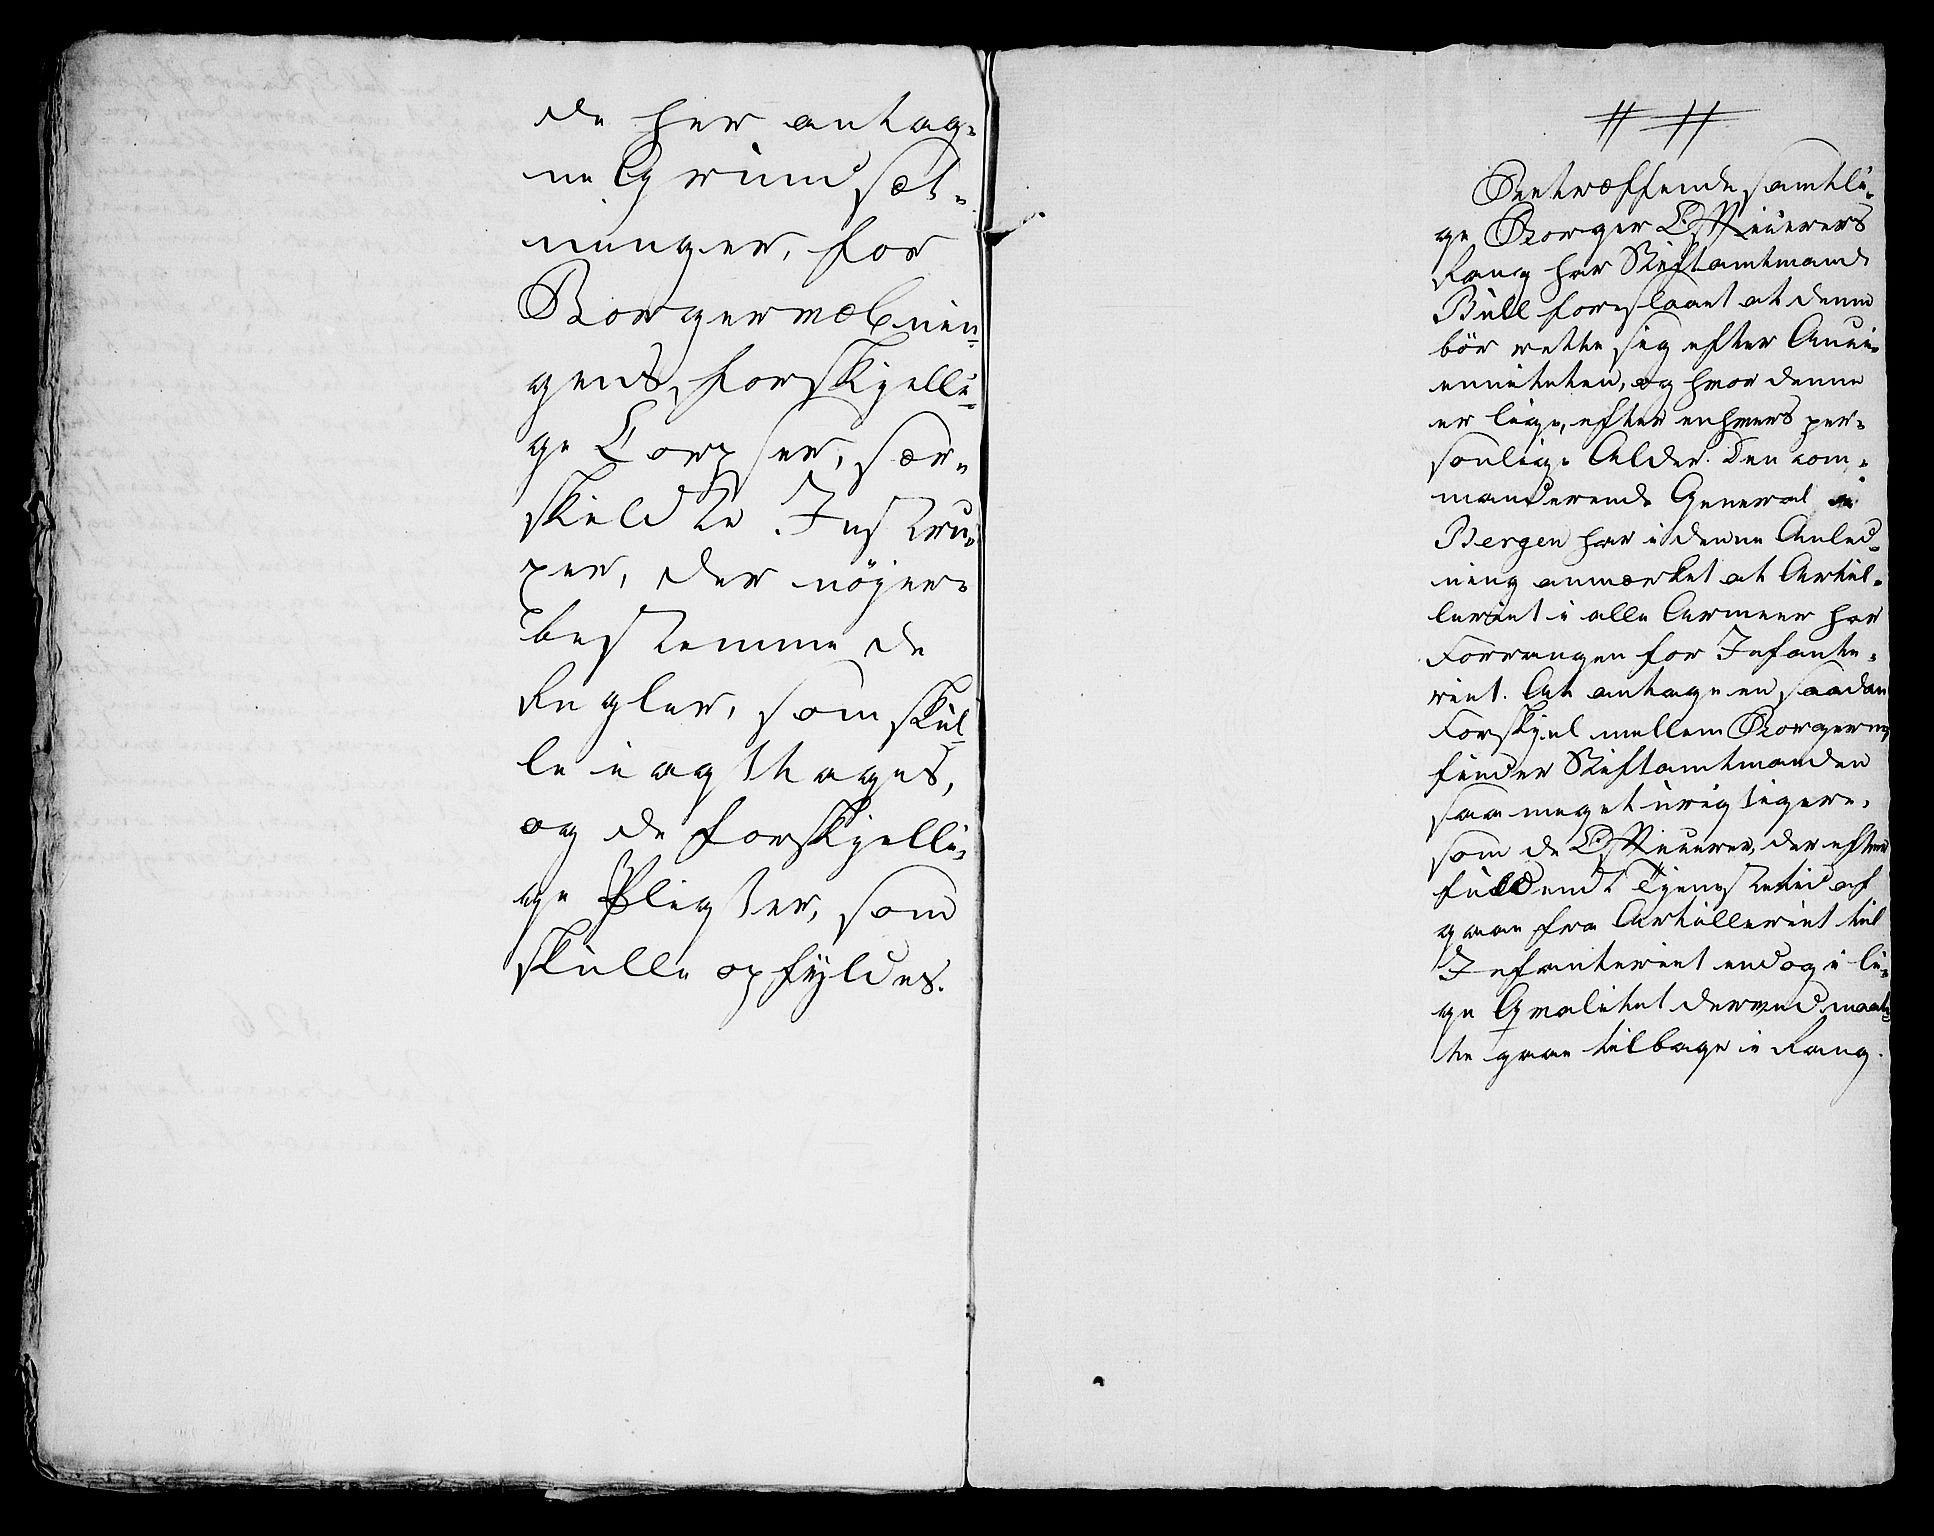 de her antag-
ne Grundsæt-
ninger, for
Borgervæbnin-
gens forskjelli-
ge Corpser, sær-
skieldte Instru-
xer, der nøjere
bestemme de
Regler, som skul-
le iagttages,
og de forskjelli-
ge Pligter, som
skulle opfyldes.
Betræffende samtli-
ge Borger Officierers
Rang har Stiftamtmand
Bull foreslaaet at denne
bör rette sig efter Anci-
enniteten, og hvor denne
er lige, efter enhvers per-
sonlige Alder. Den com-
manderende General i
Bergen har i denne Anled-
ning anmærket at Artil-
leriet i alle Armeer har
Forrangen for Infante-
riet. At antage en saadan
Forskjel mellem Borgerne
finder Stiftamtmanden
saa meget urigtigere,
som de Officierer, der efter
fuldendt Tjenestetid af
gaae fra Artilleriet til
Infanteriet endog i li-
ge Qvalitet derved maat-
te gaae tilbage i Rang.